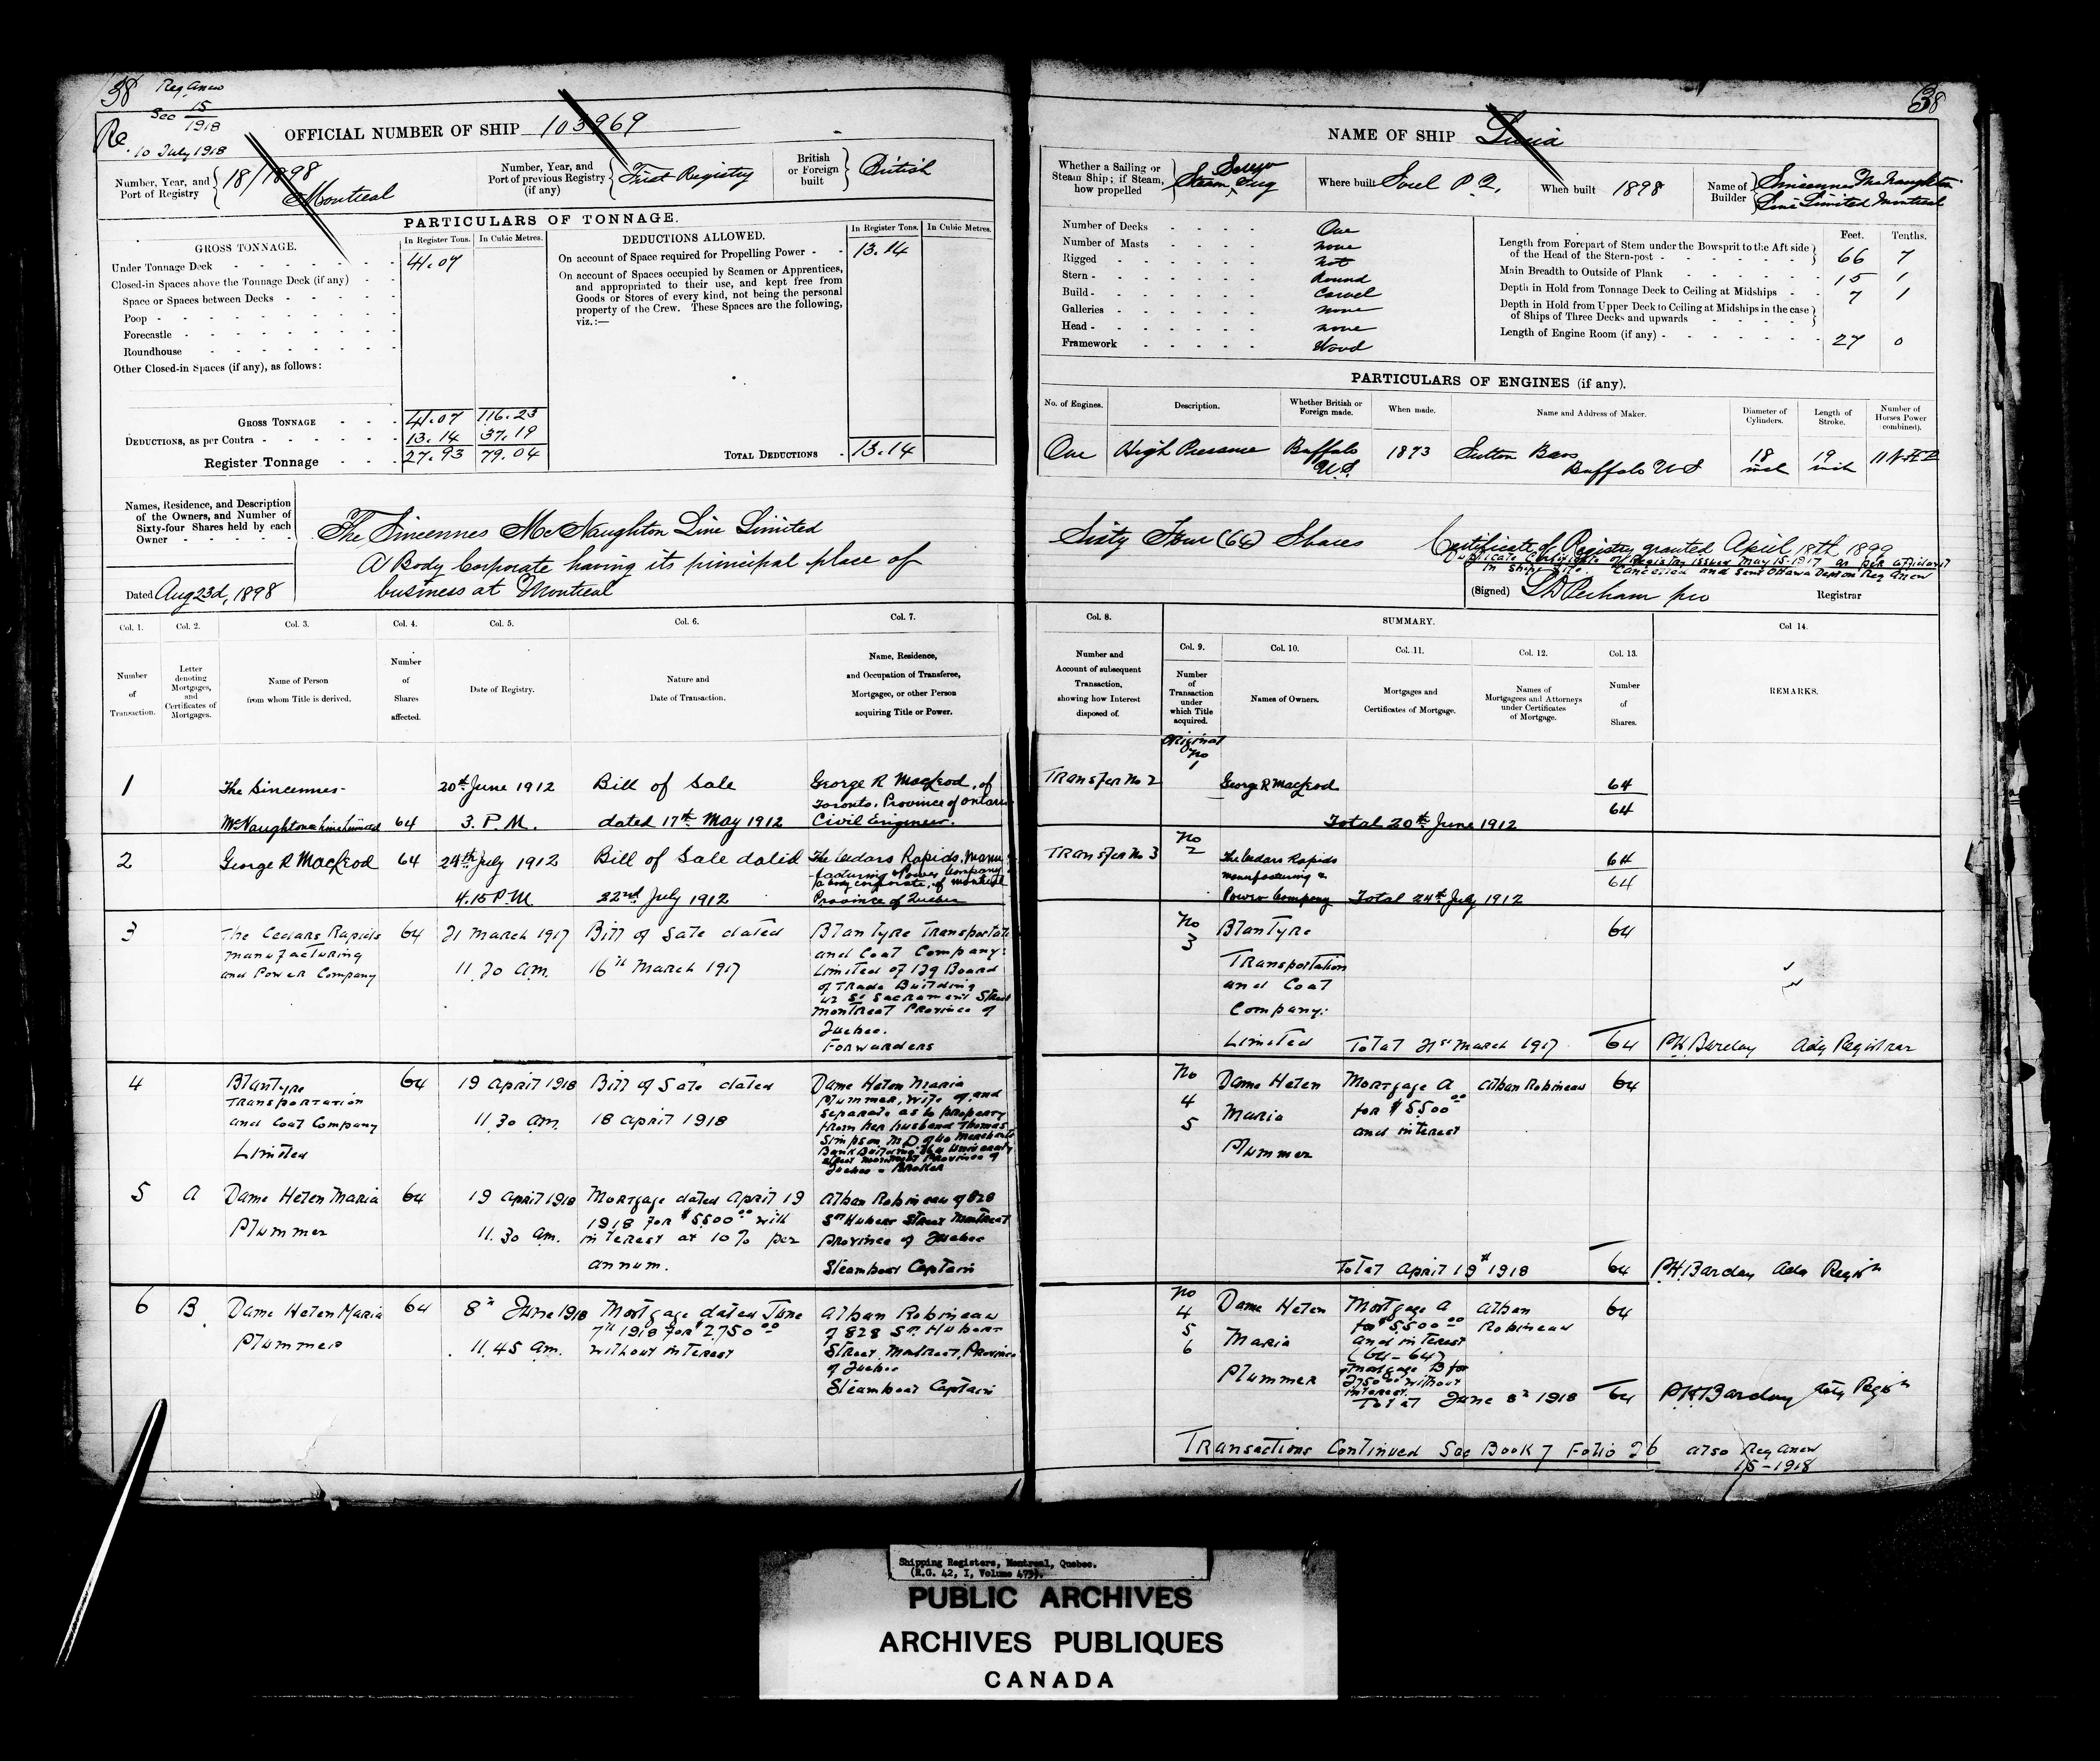 38 Reg Anew
See 15/1918
Re. 10 July 1918
OFFICIAL NUMBER OF SHIP 103969
Number, Year, and Port of Registry 18/1898 Montreal
Number, Year, and Port of previous Registry (if any) First Registry
British or Foreign built British
PARTICULARS OF TONNAGE.
GROSS TONNAGE. In Register Tons. In Cubic Metres.
Under Tonnage Deck 41.07
Closed-in Spaces above the Tonnage Deck (if any)
Space or Spaces between Decks
Poop
Forecastle
Roundhouse
Other Closed-in Spaces (if any), as follows:
GROSS TONNAGE 41.07 116.23
DEDUCTIONS, as per Contra 13.14 37.19
Register Tonnage 27.93 79.04
DEDUCTIONS ALLOWED. In Register Tons. In Cubic Metres.
On account of Space required for Propelling Power 13.14
On account of Spaces occupied by Seamen or Apprentices,
and appropriated to their use, and kept free from
Goods or Stores of every kind, not being the personal
property of the Crew. These Spaces are the following,
viz.:—
TOTAL DEDUCTIONS 13.14
Names, Residence, and Description
of the Owners, and Number of
Sixty-four Shares held by each
Owner
The Sincennes McNaughton Line Limited
A Body Corporate having its principal place of
business at Montreal
Dated Aug 23d, 1898
38
NAME OF SHIP
Whether a Sailing or Steam Ship; if Steam, how propelled Steam Screw Tug
Where built Sorel P.Q.
When built 1898
Name of Builder Sincennes McNaughton
Line Limited Montreal
Number of Decks One
Number of Masts none
Rigged not
Stern Round
Build Carvel
Galleries none
Head none
Framework Wood
Feet. Tenths.
Length from Forepart of Stem under the Bowsprit to the Aft side of the Head of the Stern-post 66 7
Main Breadth to Outside of Plank 15 1
Depth in Hold from Tonnage Deck to Ceiling at Midships 7 1
Depth in Hold from Upper Deck to Ceiling at Midships in the case of Ships of Three Decks and upwards
Length of Engine Room (if any) 27 0
PARTICULARS OF ENGINES (if any).
No. of Engines. Description. Whether British or Foreign made. When made. Name and Address of Maker. Diameter of Cylinders. Length of Stroke. Number of Horses Power (combined).
One High Pressure Buffalo U.S. 1873 Sutton Bros Buffalo U S 18 inch 19 inch
Sixty Four (64) Shares
Certificate of Registry granted April 18th 1899
Duplicate Certificate of Registry issued May 15-1917 as per affidavit
in ships file. Cancelled and sent Ottawa Reg Anew
(Signed) Registrar
Col. 1. Number of Transaction.
Col. 2. Letter denoting Mortgages, and Certificates of Mortgages.
Col. 3. Name of Person from whom Title is derived.
Col. 4. Number of Shares affected.
Col. 5. Date of Registry.
Col. 6. Nature and Date of Transaction.
Col. 7. Name, Residence, and Occupation of Transferee, Mortgagee, or other Person acquiring Title or Power.
Col. 8. Number and Account of subsequent Transaction, showing how Interest disposed of.
SUMMARY.
Col. 9. Number of Transaction under which Title acquired.
Col. 10. Names of Owners.
Col. 11. Mortgages and Certificates of Mortgage.
Col. 12. Names of Mortgagees and Attorneys under Certificates of Mortgage.
Col. 13. Number of Shares.
Col 14. REMARKS.
1 The Sincennes- McNaughton Line Limited 64
20th June 1912 3. P.M.
Bill of Sale dated 17th May 1912
George R MacLeod, of
Toronto, Province of Ontario
Civil Engineer.
Transfer No 2 Original No 1 George R MacLeod 64
Total 20th June 1912 64
2 George R MacLeod 64
24th July 1912 4.15 P.M
Bill of Sale dated 22nd July 1912
The Cedars Rapids Manu
-facturing & Power Company
a body corporate, of Montreal
Province of Quebec
Transfer No 3 No 2 The Cedars Rapids manufacturing & Power Company 64
Total 24th July 1912 64
3 The Cedars Rapids Manufacturing and Power Company 64
21 March 1917 11.20 am.
Bill of Sale dated 16th March 1917
Blantyre Transportati
and Coal Company:
Limited of 129 Board
of Trade Building
42 St Sacrament Street
Montreal Province of
Quebec.
Forwarders
No 3 Blantyre Transportation and Coal Company: Limited 64
Total 21st March 1917 64 P.H. Barclay Actg Registrar
4 Blantyre Transportation and Coal Company Limited 64
19 April 1918 11.30 am.
Bill of Sale dated 18 April 1918
Dame Helen Maria
Plummer, wife of, and
separate as to property
from her husband Thomas
Simpson M.D of 40 Merchants
Bank Building
Province of
Quebec - Broker
No 4 5 Dame Helen Maria Plummer
Mortgage A for $5500.00 and interest
Alban Robineau 64
5 A Dame Helen Maria Plummer 64
19 April 1918 11.30 am.
Mortgage dated April 19
1918 for $5500.00 with
interest at 10% per
annum.
Alban Robineau of 828
St Hubert Street Montreal
Province of Quebec
Steamboat Captain
Total April 19th 1918 64 P.H. Barclay Actg Registr
6 B. Dame Helen Maria Plummer 64
8th June 1918 11.45 am.
Mortgage dated June
7th 1918 for $2750.00
without interest
Alban Robineau
of 828 St. Hubert
Street, Montreal, Province
of Quebec
Steamboat Captain
No 4 5 6 Dame Helen Maria Plummer
Mortgage A
for $5500.00
and interest
(64-64)
Mortgage B for
2750.00 without
interest.
Alban Robineau 64
Total June 8th 1918 64 P.H. Barclay Actg Registr
Transactions Continued See Book 7 Folio 26 also Reg Anew
15-1918
Shipping Registers, Montreal, Quebec.
(R.G. 42, I, Volume 473).
PUBLIC ARCHIVES
ARCHIVES PUBLIQUES
CANADA